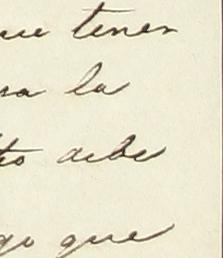 ue tener
ra la
to debe
go que